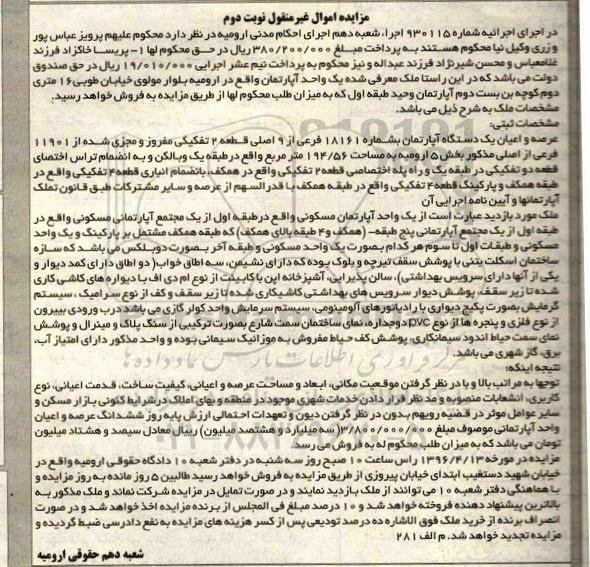 مزایده اموال غیرمنقول نوبت دوم
در اجرای اجرائیه شماره ۹۳۰۱۱۵ اجرا، شعبه دهم اجرای احکام مدنی ارومیه در نظر دارد محکوم علیهم پرویز عباس پور
و زری وکیل نیا محکوم هستند به پرداخت مبلغ ۳۸۰/۲۰۰/۰۰۰ ریال در حق محکوم لها ۱- پریسا خاکزاد فرزند
غلامعباس و محسن شیرنژاد فرزند عبداله و نیز محکوم به پرداخت نیم عشر اجرایی ۱۹/۰۱۰/۰۰۰ ریال در حق صندوق
دولت می باشد که در این راستا ملک معرفی شده یک واحد آپارتمان واقع در ارومیه بلوار مولوی خیابان طوبی ۱۶ متری
دوم کوچه بن بست دوم آپارتمان وحید طبقه اول که به میزان طلب محکوم لها از طریق مزایده به فروش خواهد رسید.
مشخصات ملک به شرح ذیل می باشد.
مشخصات ثبتی:
عرصه و اعیان یک دستگاه آپارتمان بشماره ۱۸۱۶۱ فرعی از ۹ اصلی قطعه ۲ تفکیکی مفروز و مجزی شده از ۱۱۹۰۱
فرعی از اصلی مذکور بخش ۵ ارومیه به مساحت ۱۹۴/۵۶ متر مربع واقع در طبقه یک و بالکن و به انضمام تراس اختصاصی
قطعه دو تفکیکی در طبقه یک و راه پله اختصاصی قطعه ۲ تفکیکی واقع در همکف، بانضمام انباری قطعه ۴ تفکیکی واقع در
طبقه همکف و پارکینگ قطعه ۴ تفکیکی واقع در طبقه همکف با قدر السهم از عرصه و سایر مشترکات طبق قانون تملک
آپارتمانها و آیین نامه اجرایی آن
ملک مورد بازدید عبارت است از یک واحد آپارتمان مسکونی واقع در طبقه اول از یک مجتمع آپارتمانی مسکونی واقع در
طبقه اول از یک مجتمع آپارتمانی پنج طبقه- (همکف و ۴ طبقه بالای همکف) که طبقه همکف مشتمل بر پارکینگ و یک واحد
مسکونی و طبقات اول تا سوم هر کدام بصورت یک واحد مسکونی و طبقه آخر بصورت دوبلکس می باشد که سازه
ساختمان اسکلت بتنی با پوشش سقف تیرچه و بلوک بوده که دارای نشیمن، سه اطاق خواب( دو اطاق دارای کمد دیوار و
یکی از آنها دارای سرویس بهداشتی)، سالن پذیرایی، آشپزخانه اپن با کابینت از نوع ام دی اف با دیواره های کاشی کاری
شده تا زیر سقف، پوشش دیوار سرویس های بهداشتی کاشیکاری شده تا زیر سقف و کف از نوع سرامیک، سیستم
گرمایش بصورت پکیج دیواری با رادیاتورهای آلومینومی، سیستم سرمایش واحد کولر گازی می باشد درب ورودی بیرون
از نوع فلزی و پنجره ها از نوع pvc دوجداره، نمای ساختمان سمت شارع بصورت ترکیبی از سنگ پلاک و مینرال و پوشش
نمای سمت حیاط اندود سیمانکاری، پوشش کف حیاط مفروش به موزائیک سیمانی بوده و واحد مذکور دارای امتیاز آب،
برق، گاز شهری می باشد.
نتیجه اینکه:
توجها به مراتب بالا و با در نظر گرفتن موقعیت مکانی، ابعاد و مساحت عرصه و اعیانی، کیفیت ساخت، قدمت اعیانی، نوع
کاربری، انشعابات منصوبه و مد نظر قرار دادن خدمات شهری موجود در منطقه و بهای املاک در شرایط کنونی بازار مسکن و
سایر عوامل موثر در قضیه رویهم بدون در نظر گرفتن دیون و تعهدات احتمالی ارزش پایه روز ششدانگ عرصه و اعیان
واحد آپارتمانی موصوف مبلغ ۳/۸۰۰/۰۰۰/۰۰۰ (سه میلیارد و هشتصد میلیون) ریال معادل سیصد و هشتاد میلیون
تومان می باشد که به میزان طلب محکوم له به فروش می رسد.
مزایده در مورخه ۱۳۹۶/۴/۱۳ راس ساعت ۱۰ صبح روز سه شنبه در دفتر شعبه ۱۰ دادگاه حقوقی ارومیه واقع در
خیابان شهید دستغیب ابتدای خیابان پیروزی از طریق مزایده به فروش خواهد رسید طالبین ۵ روز مانده به روز مزایده و
با هماهنگی دفتر شعبه ۱۰ می توانند از ملک بازدید نمایند و در صورت تمایل در مزایده شرکت نماند و ملک مذکور به
بالاترین پیشنهاد دهنده فروخته خواهد شد و ۱۰ درصد مبلغ فی المجلس از برنده مزایده اخذ خواهد شد و در صورت
انصراف برنده از خرید ملک فوق الاشاره ده درصد تودیعی پس از کسر هزینه های مزایده به نفع دادرسی ضبط گردیده و
مزایده تجدید خواهد شد. م الف ۲۸۱
شعبه دهم حقوقی ارومیه